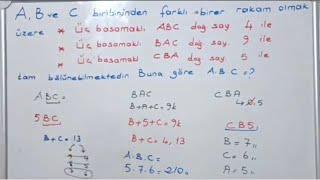 A, B ve C birbirinden farklı birer rakam olmak
üzere * Üç basamaklı ABC doğ say. 4 ile
* Üç basamaklı BAC doğ say. 9 ile
* Üç basamaklı CBA doğ say. 5 ile
tam bölünebilmektedir Buna göre A.B.C = ?
ABC BAC CBA
B+A+C=9k 0,5
5BC B+5+C=9k CB5
B+C=13 B+C=4,13 B=7
A.B.C= C=6
5.7.6=210 A=5